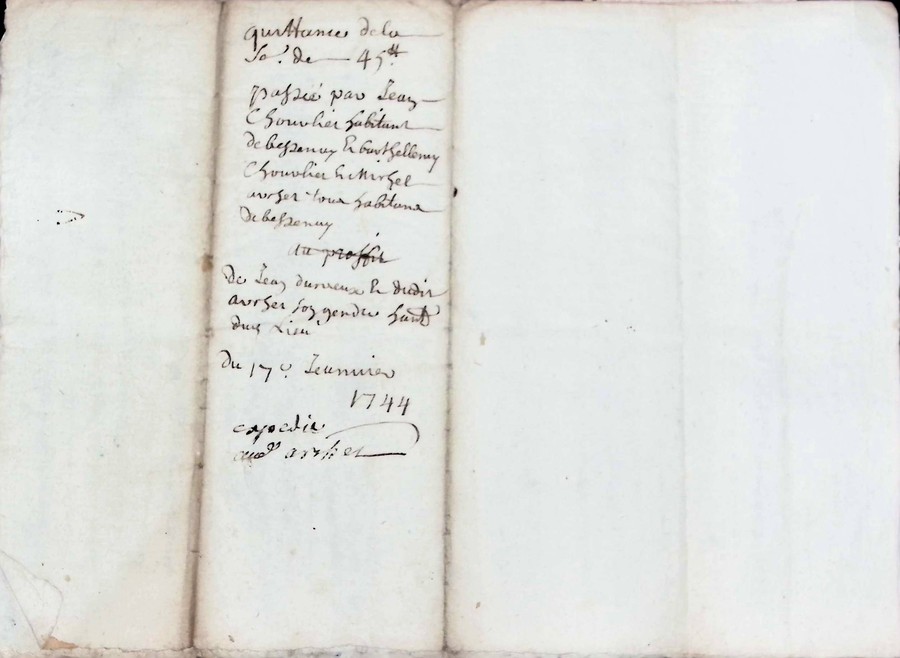 quittance dela
So.e de 45tt
passée par Jean
Chouvlier habitant
de bessenay Et barthellemy
Chouvlier Et Michel
archer tous habitans
de bessenay
au proffit
De Jean Et dudit
archer son gendre habt
dud Lieu
Du 17e Jeanvier
1744
expedie
aud archer